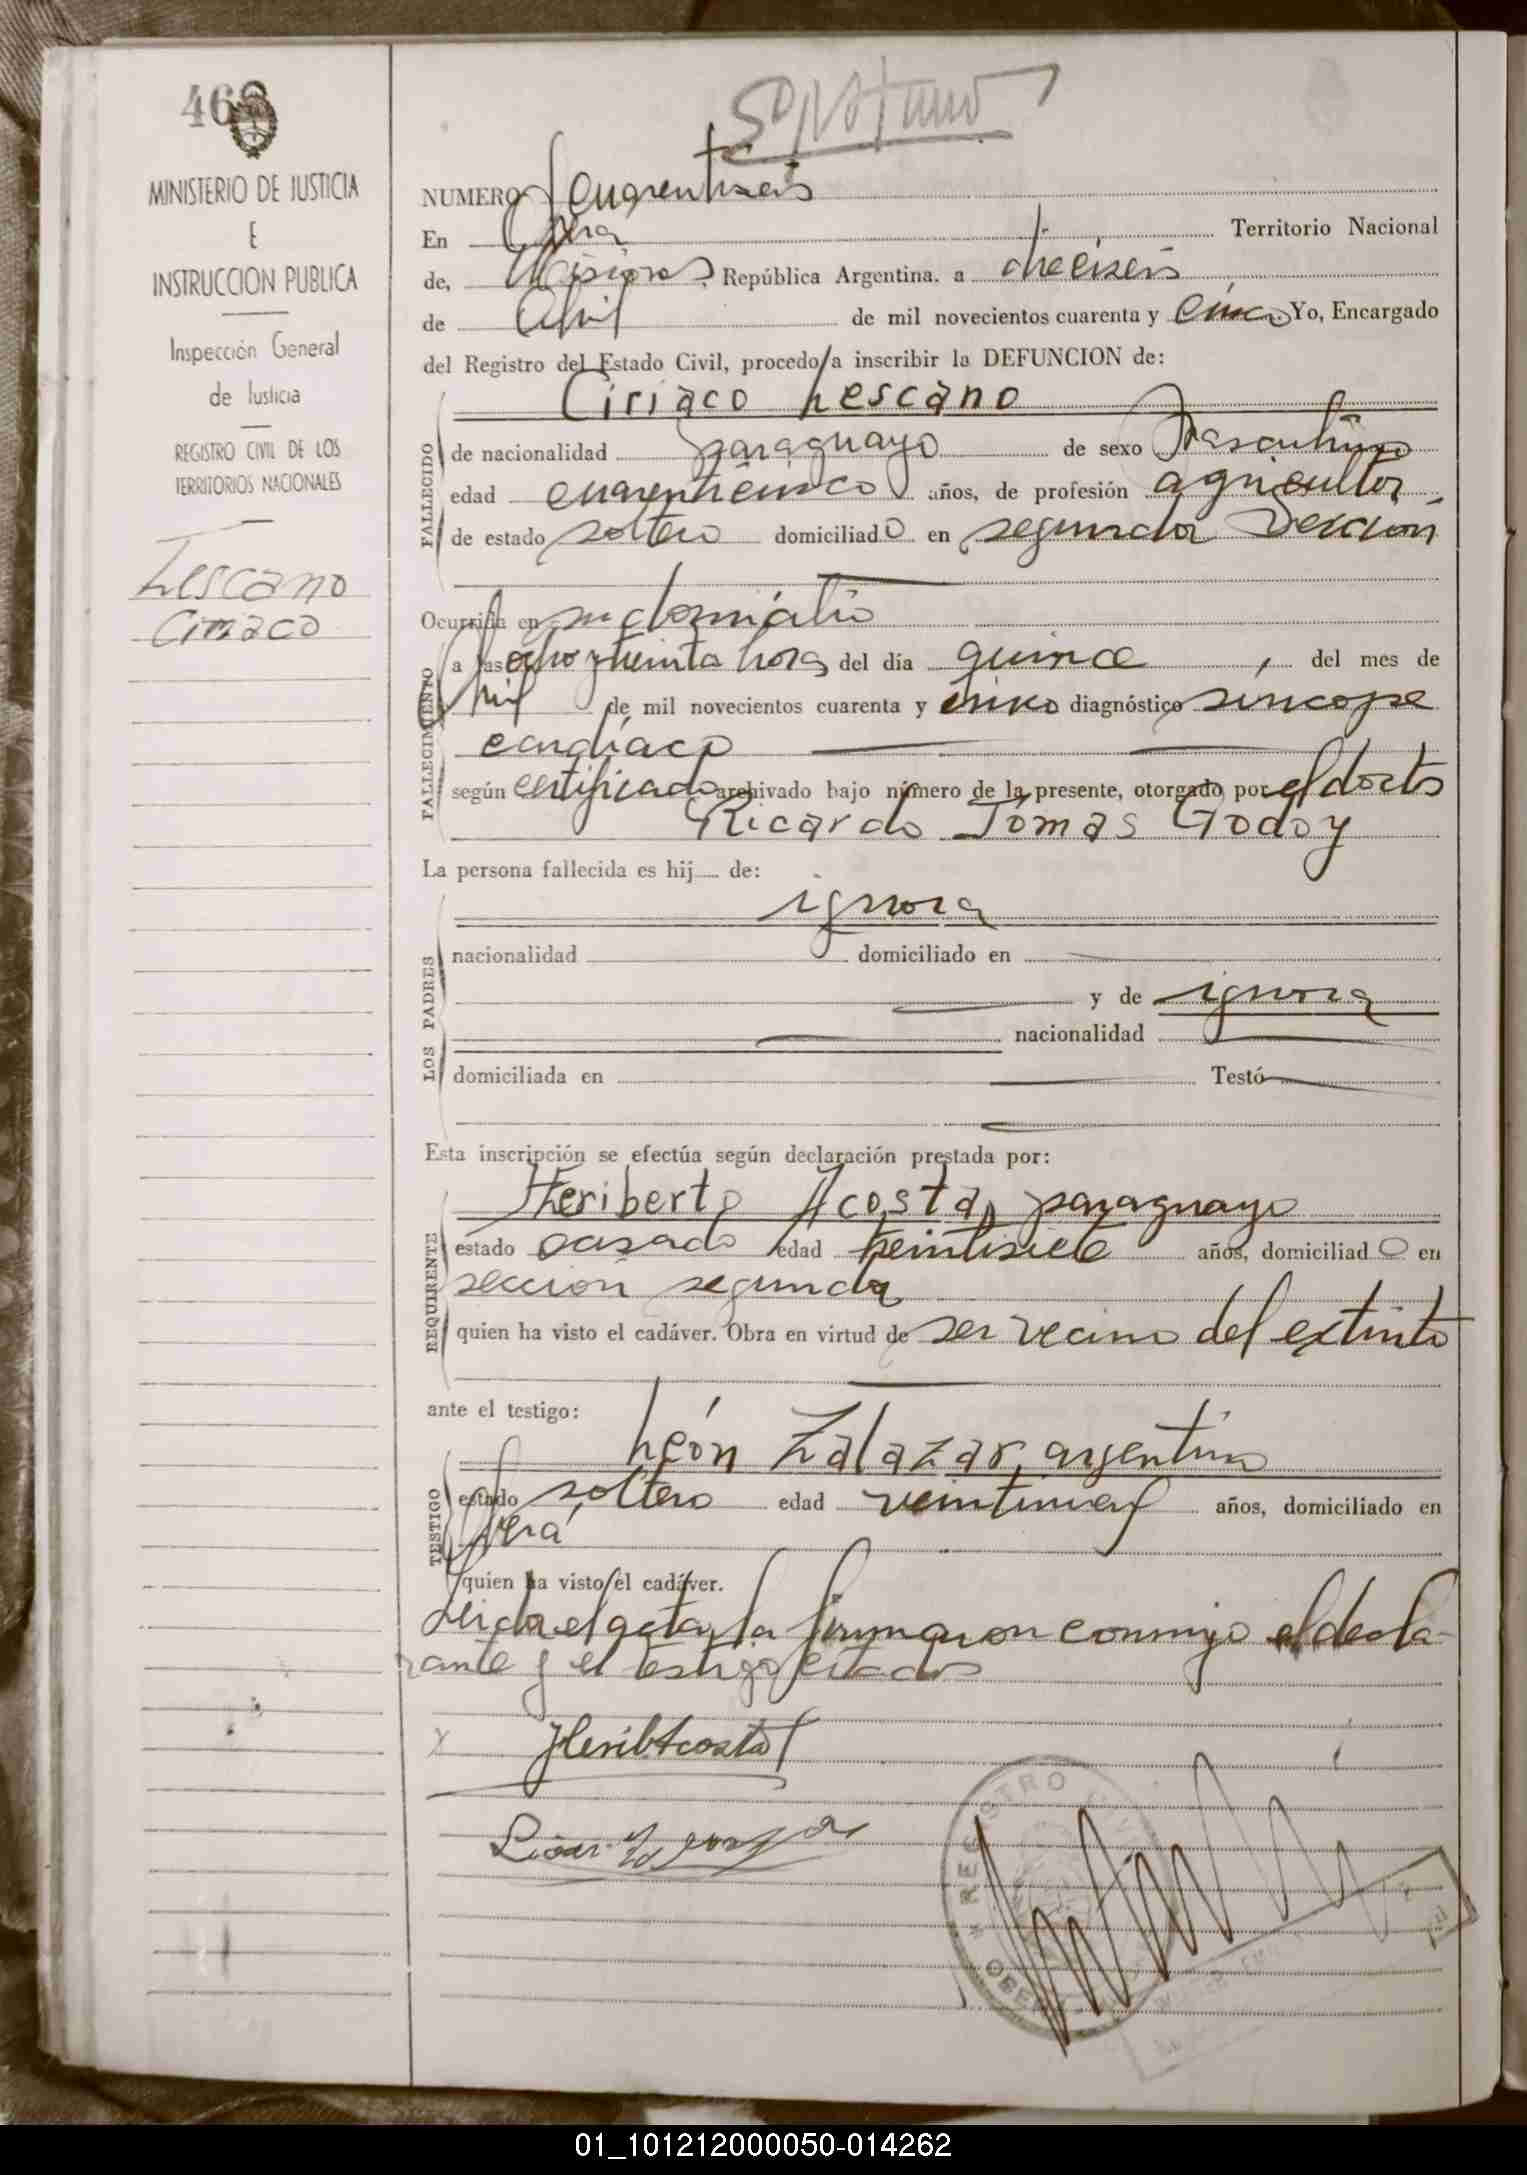 468
MINISTERIO DE JUSTICIA
E
INSTRUCCION PUBLICA
Inspección General
de Justicia
REGISTRO CIVIL DE LOS
TERRITORIOS NACIONALES
Lescano
Ciriaco
NUMERO cuarentiseis
En Oberá Territorio Nacional
de, Misiones, República Argentina. a dieciseis
de Abril de mil novecientos cuarenta y cinco Yo, Encargado
del Registro del Estado Civil, procedo a inscribir la DEFUNCION de:
Ciriaco Lescano
FALLECIDO
de nacionalidad paraguayo de sexo masculino
edad cuarenticinco años, de profesión agricultor
de estado soltero domiciliado en segunda Sección
Ocurrida en su domicilio
FALLECIMIENTO
a las ocho y treinta horas del día quince, del mes de
Abril de mil novecientos cuarenta y cinco diagnóstico síncope
cardíaco
según certificado archivado bajo número de la presente, otorgado por el doctor
Ricardo Tomas Godoy
La persona fallecida es hij de:
LOS PADRES
ignora
nacionalidad domiciliado en
y de ignora
nacionalidad
domiciliada en Testó
Esta inscripción se efectúa según declaración prestada por:
REQUIRENTE
Heriberto Acosta, paraguayo
estado casado edad treintisiete años, domiciliado en
sección segunda
quien ha visto el cadáver. Obra en virtud de ser vecino del extinto
ante el testigo:
TESTIGO
León Zalazar, argentino
estado soltero edad veintinueve años, domiciliado en
Oberá
quien ha visto el cadáver.
Leida el acta, la firmaron conmigo el decla-
rante y el testigo citados
x HeribAcosta
REGISTRO CIVIL
01_101212000050-014262